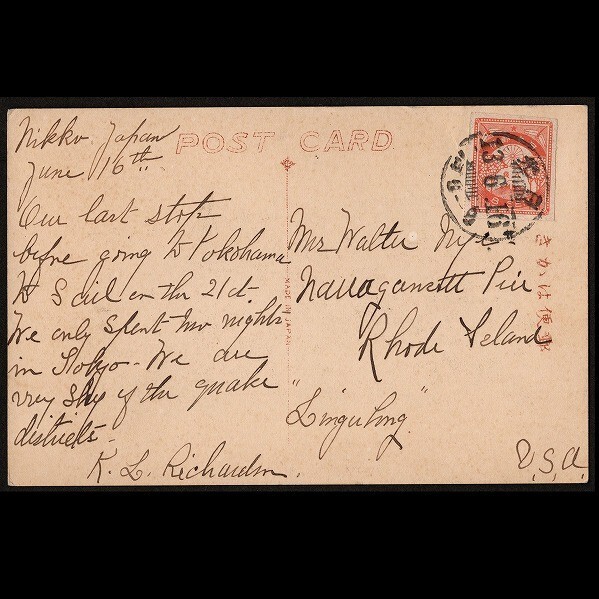 POST CARD
Nikko, Japan
June 16th
Our last stop
before going to Yokohama
to sail on the 21st.
We only spent two nights
in Tokyo - We are
very shy of the quake
districts -
K. L. Richardson.
MADE IN JAPAN
Mr Walter
Narragansett Pier
Rhode Island
U.S.A.
きかは便郵
13.6.16